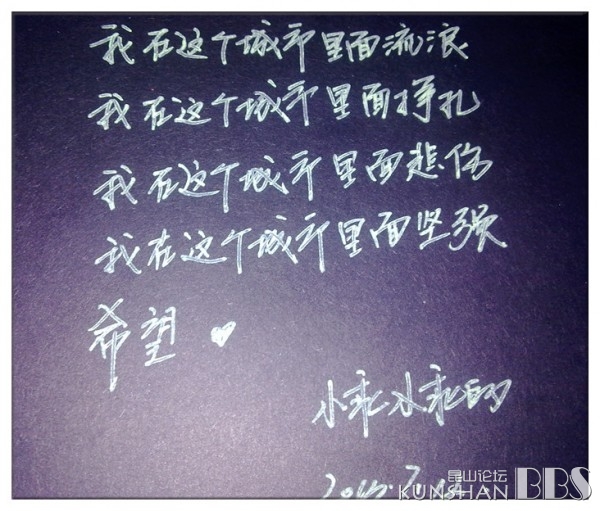 我在这个城市里面流浪
我在这个城市里面挣扎
我在这个城市里面悲伤
我在这个城市里面坚强
希望
小乖小乖的
昆山论坛
KUNSHAN BBS